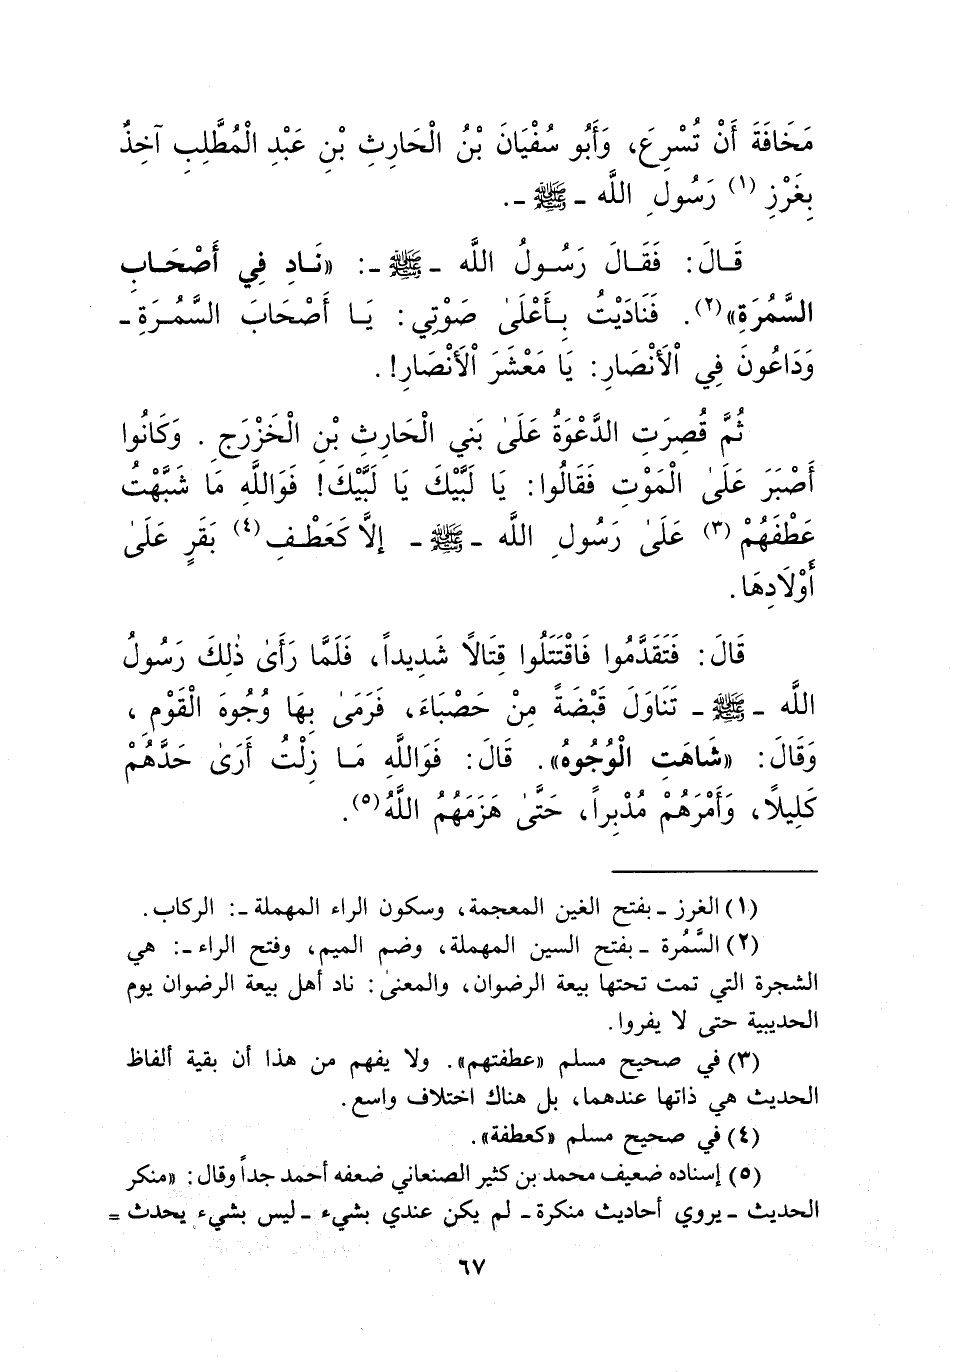 مَخَافَةَ أَنْ تُسْرِعَ، وَأَبُو سُفْيَانَ بْنُ الْحَارِثِ بْنِ عَبْدِ الْمُطَّلِبِ آخِذٌ
بِغَرْزِ (١) رَسُولِ اللَّه ـ ﷺ ـ.
قَـالَ: فَقَـالَ رَسُـولُ اللَّه ـ ﷺ ـ: «نَـادِ فِي أَصْحَـابِ
السَّمُرَةِ»(٢). فَنَادَيْتُ بِـأَعْلَىٰ صَوْتِي: يَـا أَصْحَابَ السَّمُـرَةِ ـ
وَدَاعُونَ فِي الْأَنْصَارِ: يَا مَعْشَرَ الْأَنْصَارِ!.
ثُمَّ قُصِرَتِ الدَّعْوَةُ عَلَىٰ بَنِي الْحَارِثِ بْنِ الْخَزْرَجِ. وَكَانُوا
أَصْبَرَ عَلَىٰ الْمَوْتِ فَقَالُوا: يَا لَبَّيْكَ يَا لَبَّيْكَ! فَوَاللَّهِ مَا شَبَّهْتُ
عَطْفَهُمْ (٣) عَلَىٰ رَسُولِ اللَّه ـ ﷺ ـ إِلَّا كَعَطْـفِ(٤) بَقَرٍ عَلَىٰ
أَوْلَادِهَا.
قَالَ: فَتَقَدَّمُوا فَاقْتَتَلُوا قِتَالًا شَدِيداً، فَلَمَّا رَأَىٰ ذٰلِكَ رَسُولُ
اللَّه ـ ﷺ ـ تَنَاوَلَ قَبْضَةً مِنْ حَصْبَاءَ، فَرَمَىٰ بِهَا وُجُوهَ الْقَوْمِ،
وَقَالَ: «شَاهَتِ الْوُجُوهُ». قَالَ: فَوَاللَّهِ مَـا زِلْتُ أَرَىٰ حَدَّهُمْ
كَلِيلًا، وَأَمْرَهُمْ مُدْبِراً، حَتَّىٰ هَزَمَهُمُ اللَّهُ(٥).
(١) الغرز ـ بفتح الغين المعجمة، وسكون الراء المهملة ـ: الركاب.
(٢) السَّمُرة ـ بفتح السين المهملة، وضم الميم، وفتح الراء ـ: هي
الشجرة التي تمت تحتها بيعة الرضوان، والمعنىٰ: ناد أهل بيعة الرضوان يوم
الحديبية حتى لا يفروا.
(٣) في صحيح مسلم «عطفتهم». ولا يفهم من هذا أن بقية ألفاظ
الحديث هي ذاتها عندهما، بل هناك اختلاف واسع.
(٤) في صحيح مسلم «كعطفة».
(٥) إسناده ضعيف محمد بن كثير الصنعاني ضعفه أحمد جداً وقال: «منكر
الحديث ـ يروي أحاديث منكرة ـ لم يكن عندي بشيء ـ ليس بشيء يحدث =
٦٧